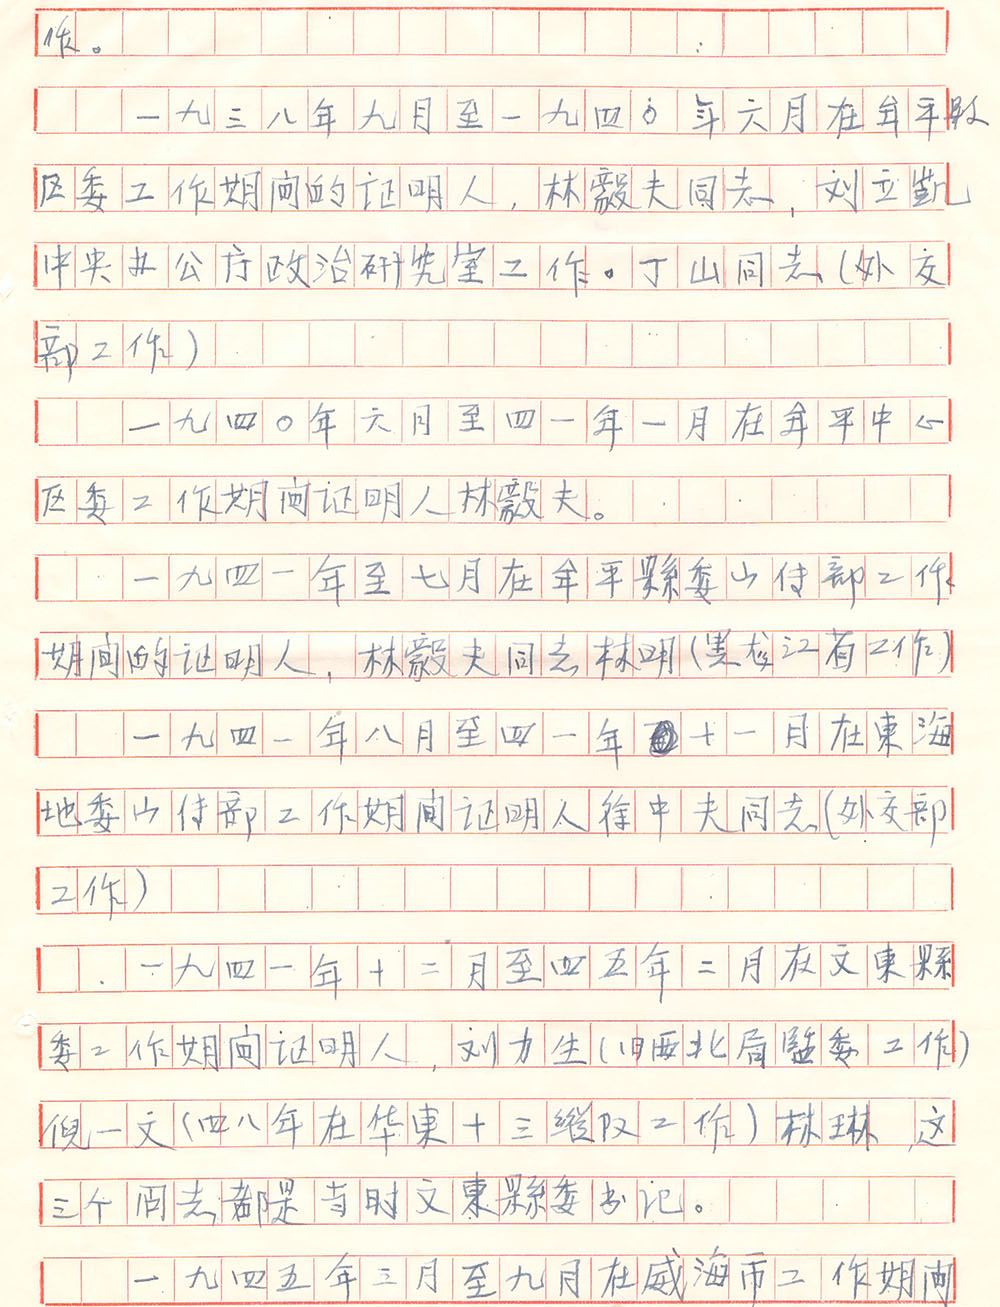 作。
一九三八年九月至一九四〇年六月在牟平
区委工作期间的证明人，林毅夫同志，刘立凯
中央办公厅政治研究室工作。丁山同志（外交
部工作）
一九四〇年六月至四一年一月在牟平中心
区委工作期间证明人林毅夫。
一九四一年至七月在牟平縣委山付部工作
期间的证明人，林毅夫同志林明（黑龙江省工作）
一九四一年八月至四一年十一月在東海
地委山付部工作期间证明人徐中夫同志（外交部
工作）
一九四一年十二月至四五年二月在文東縣
委工作期间证明人，刘力生（旧西北局监委工作）
倪一文（四八年在华東十三縱队工作）林琳，这
三个同志都是当时文東縣委书记。
一九四五年三月至九月在威海市工作期间